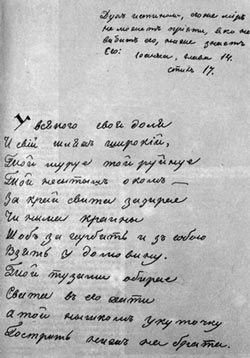 Духъ истины, его же міръ
не можетъ пріяти, яко не
видитъ его, ниже знаетъ
Его: Іоанна, глава 14.
стихъ 17.
У всякого своя доля
И свій шляхъ широкій,
Той муруе той руйнуе
Той неситымъ окомъ —
За край свита зазирае
Чи нема краины
Щобъ загарбать и зъ собою
Взять у домовину.
Той тузами обирае
Свата въ его хати
А той нышкомъ у куточку
Гострить нижъ на брата.